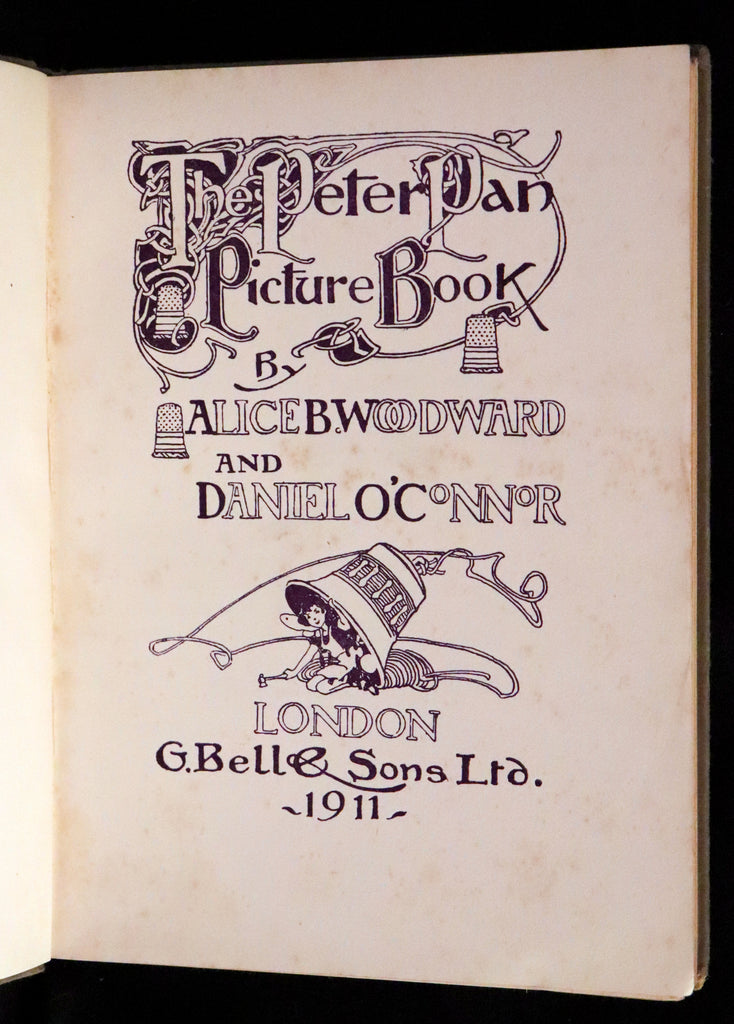 The Peter Pan
Picture Book
By
ALICE B. WOODWARD
AND
DANIEL O'CONNOR
LONDON
G. Bell & Sons Ltd.
~1911~